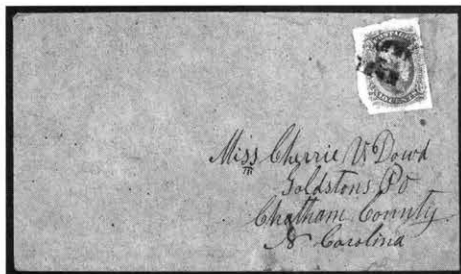 Miss Cherrie V Dowd
Goldstons PO
Chatham County
N Carolina